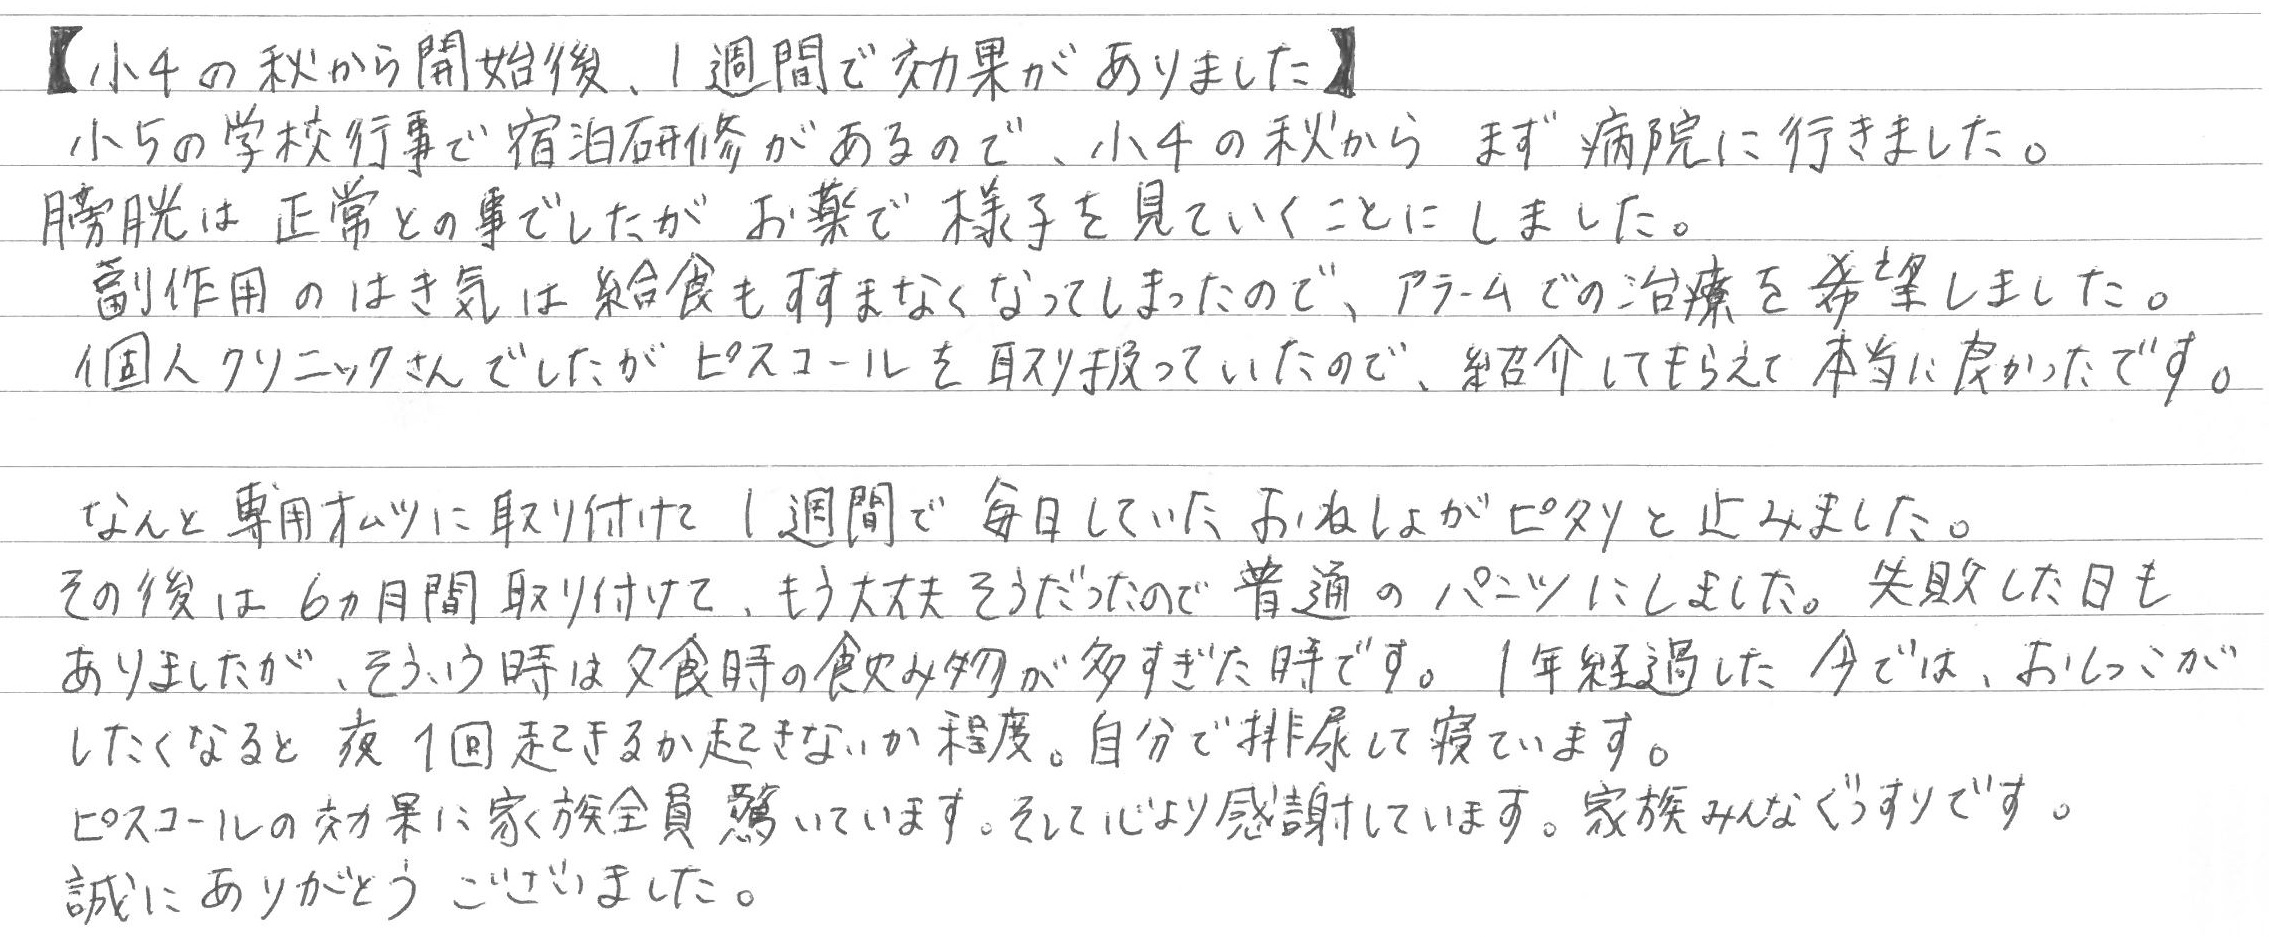 【小4の秋から開始後、1週間で効果がありました】
小5の学校行事で宿泊研修があるので、小4の秋から まず 病院に行きました。
膀胱は 正常との事でしたが お薬で 様子を見ていくことにしました。
副作用のはき気は給食もすすまなくなってしまったので、アラームでの治療を希望しました。
個人クリニックさんでしたが ピスコールを取り扱っていたので、紹介してもらえて 本当に良かったです。
なんと専用オムツに取り付けて 1週間で 毎日していた おねしょがピタリと止みました。
その後は 6ヵ月間 取り付けて、もう大丈夫そうだったので 普通の パンツにしました。失敗した日も
ありましたが、そういう時は夕食時の飲み物が多すぎた時です。1年経過した 今では、おしっこが
したくなると 夜 1回 起きるか起きないか程度。自分で排尿して寝ています。
ピスコールの効果に家族全員 驚いています。そして心より感謝しています。家族みんなぐっすりです。
誠にありがとう ございました。